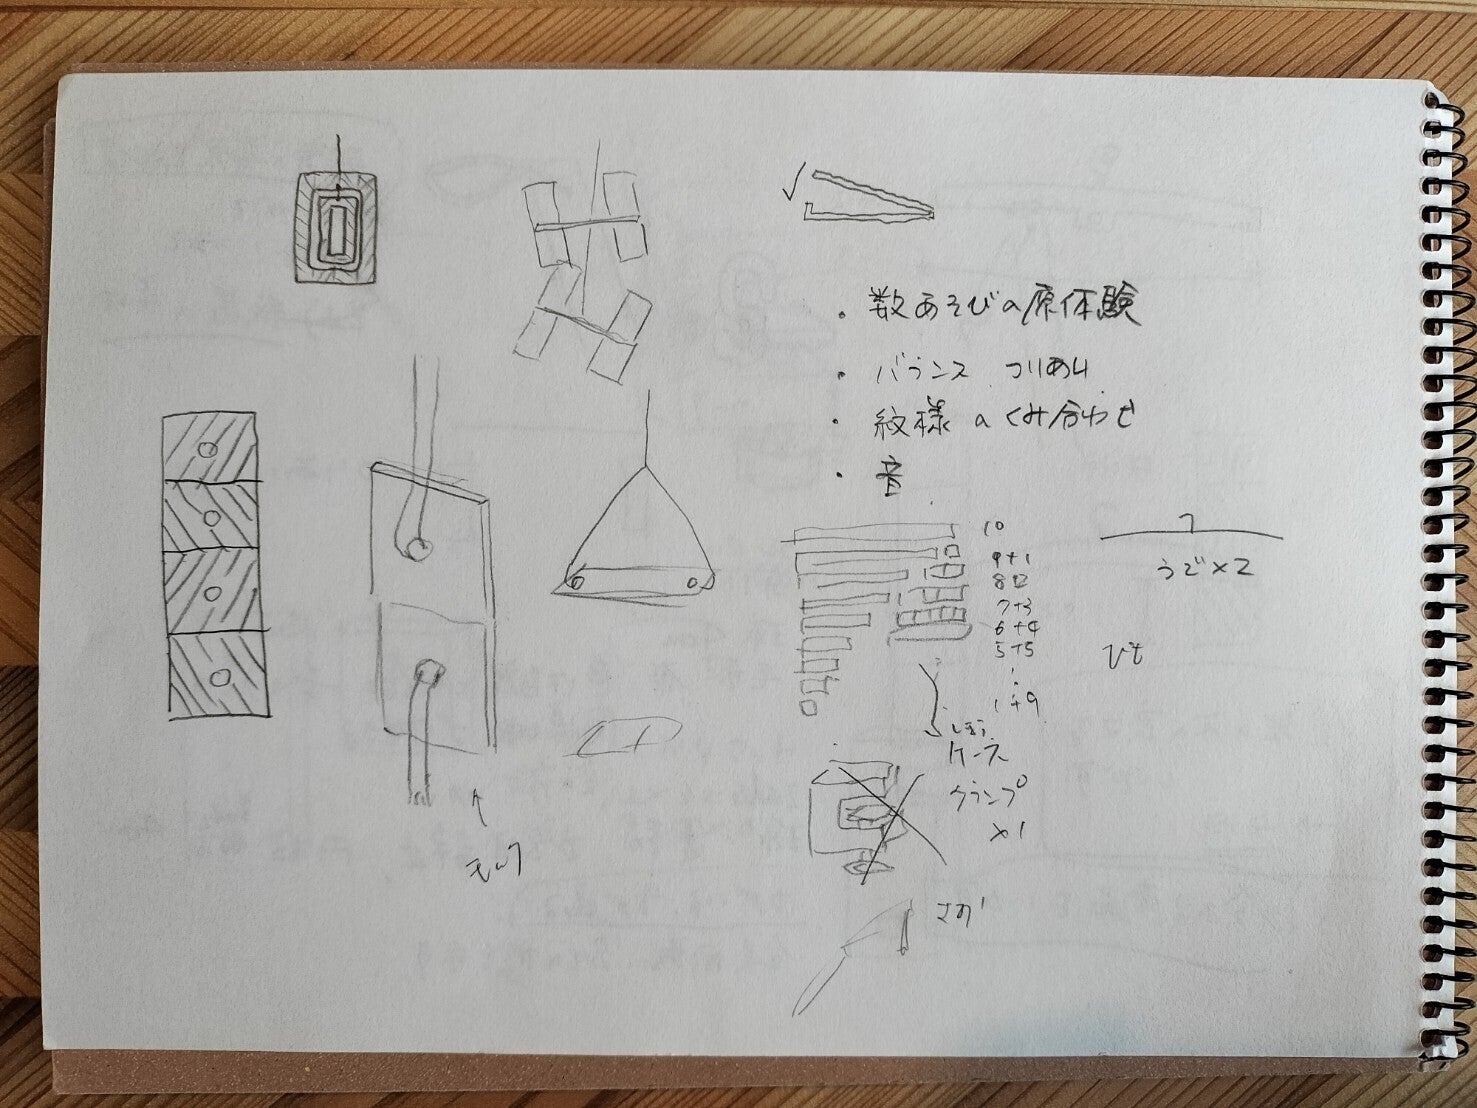 ・数あそびの原体験
・バランス つりあい
・紋様のくみ合わせ
・音
10
9+1
8+2
7+3
6+4
5+5
1+9
うで×2
ひも
ケース
クランプ
×1